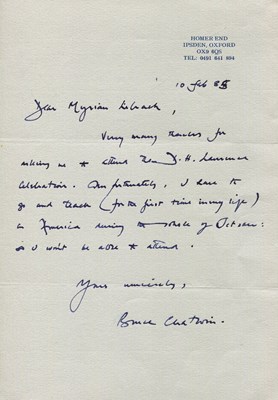 HOMER END
IPSDEN, OXFORD
OX9 6QS
TEL: 0491 681 894
10 Feb
Dear Myrian
Very many thanks for
asking me to attend the D. H. Lawrence
celebration. Unfortunately, I have to
go and teach (for the first time in my life)
in America during the whole of October:
so I won't be able to attend.
Yours sincerely,
Bruce Chatwin.